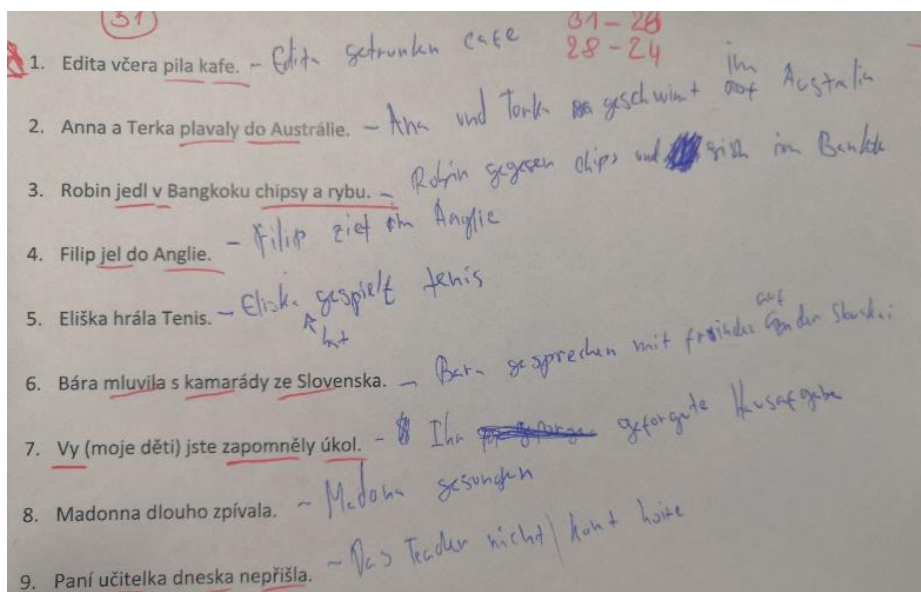 31
31-28
28-24
1. Edita včera pila kafe. - Edita getrunken cafe
2. Anna a Terka plavaly do Austrálie. - Ana und geschwimt im Australia
3. Robin jedl v Bangkoku chipsy a rybu. - Robin gegesen chips und im
4. Filip jel do Anglie. - Filip Anglie
5. Eliška hrála Tenis. - Eliska gespielt tenis
hat
6. Bára mluvila s kamarády ze Slovenska. - Bara gesprechen mit auf
7. Vy (moje děti) jste zapomněly úkol. - Ihn
8. Madonna dlouho zpívala. - Madona gesungen
9. Paní učitelka dneska nepřišla. - Das nicht